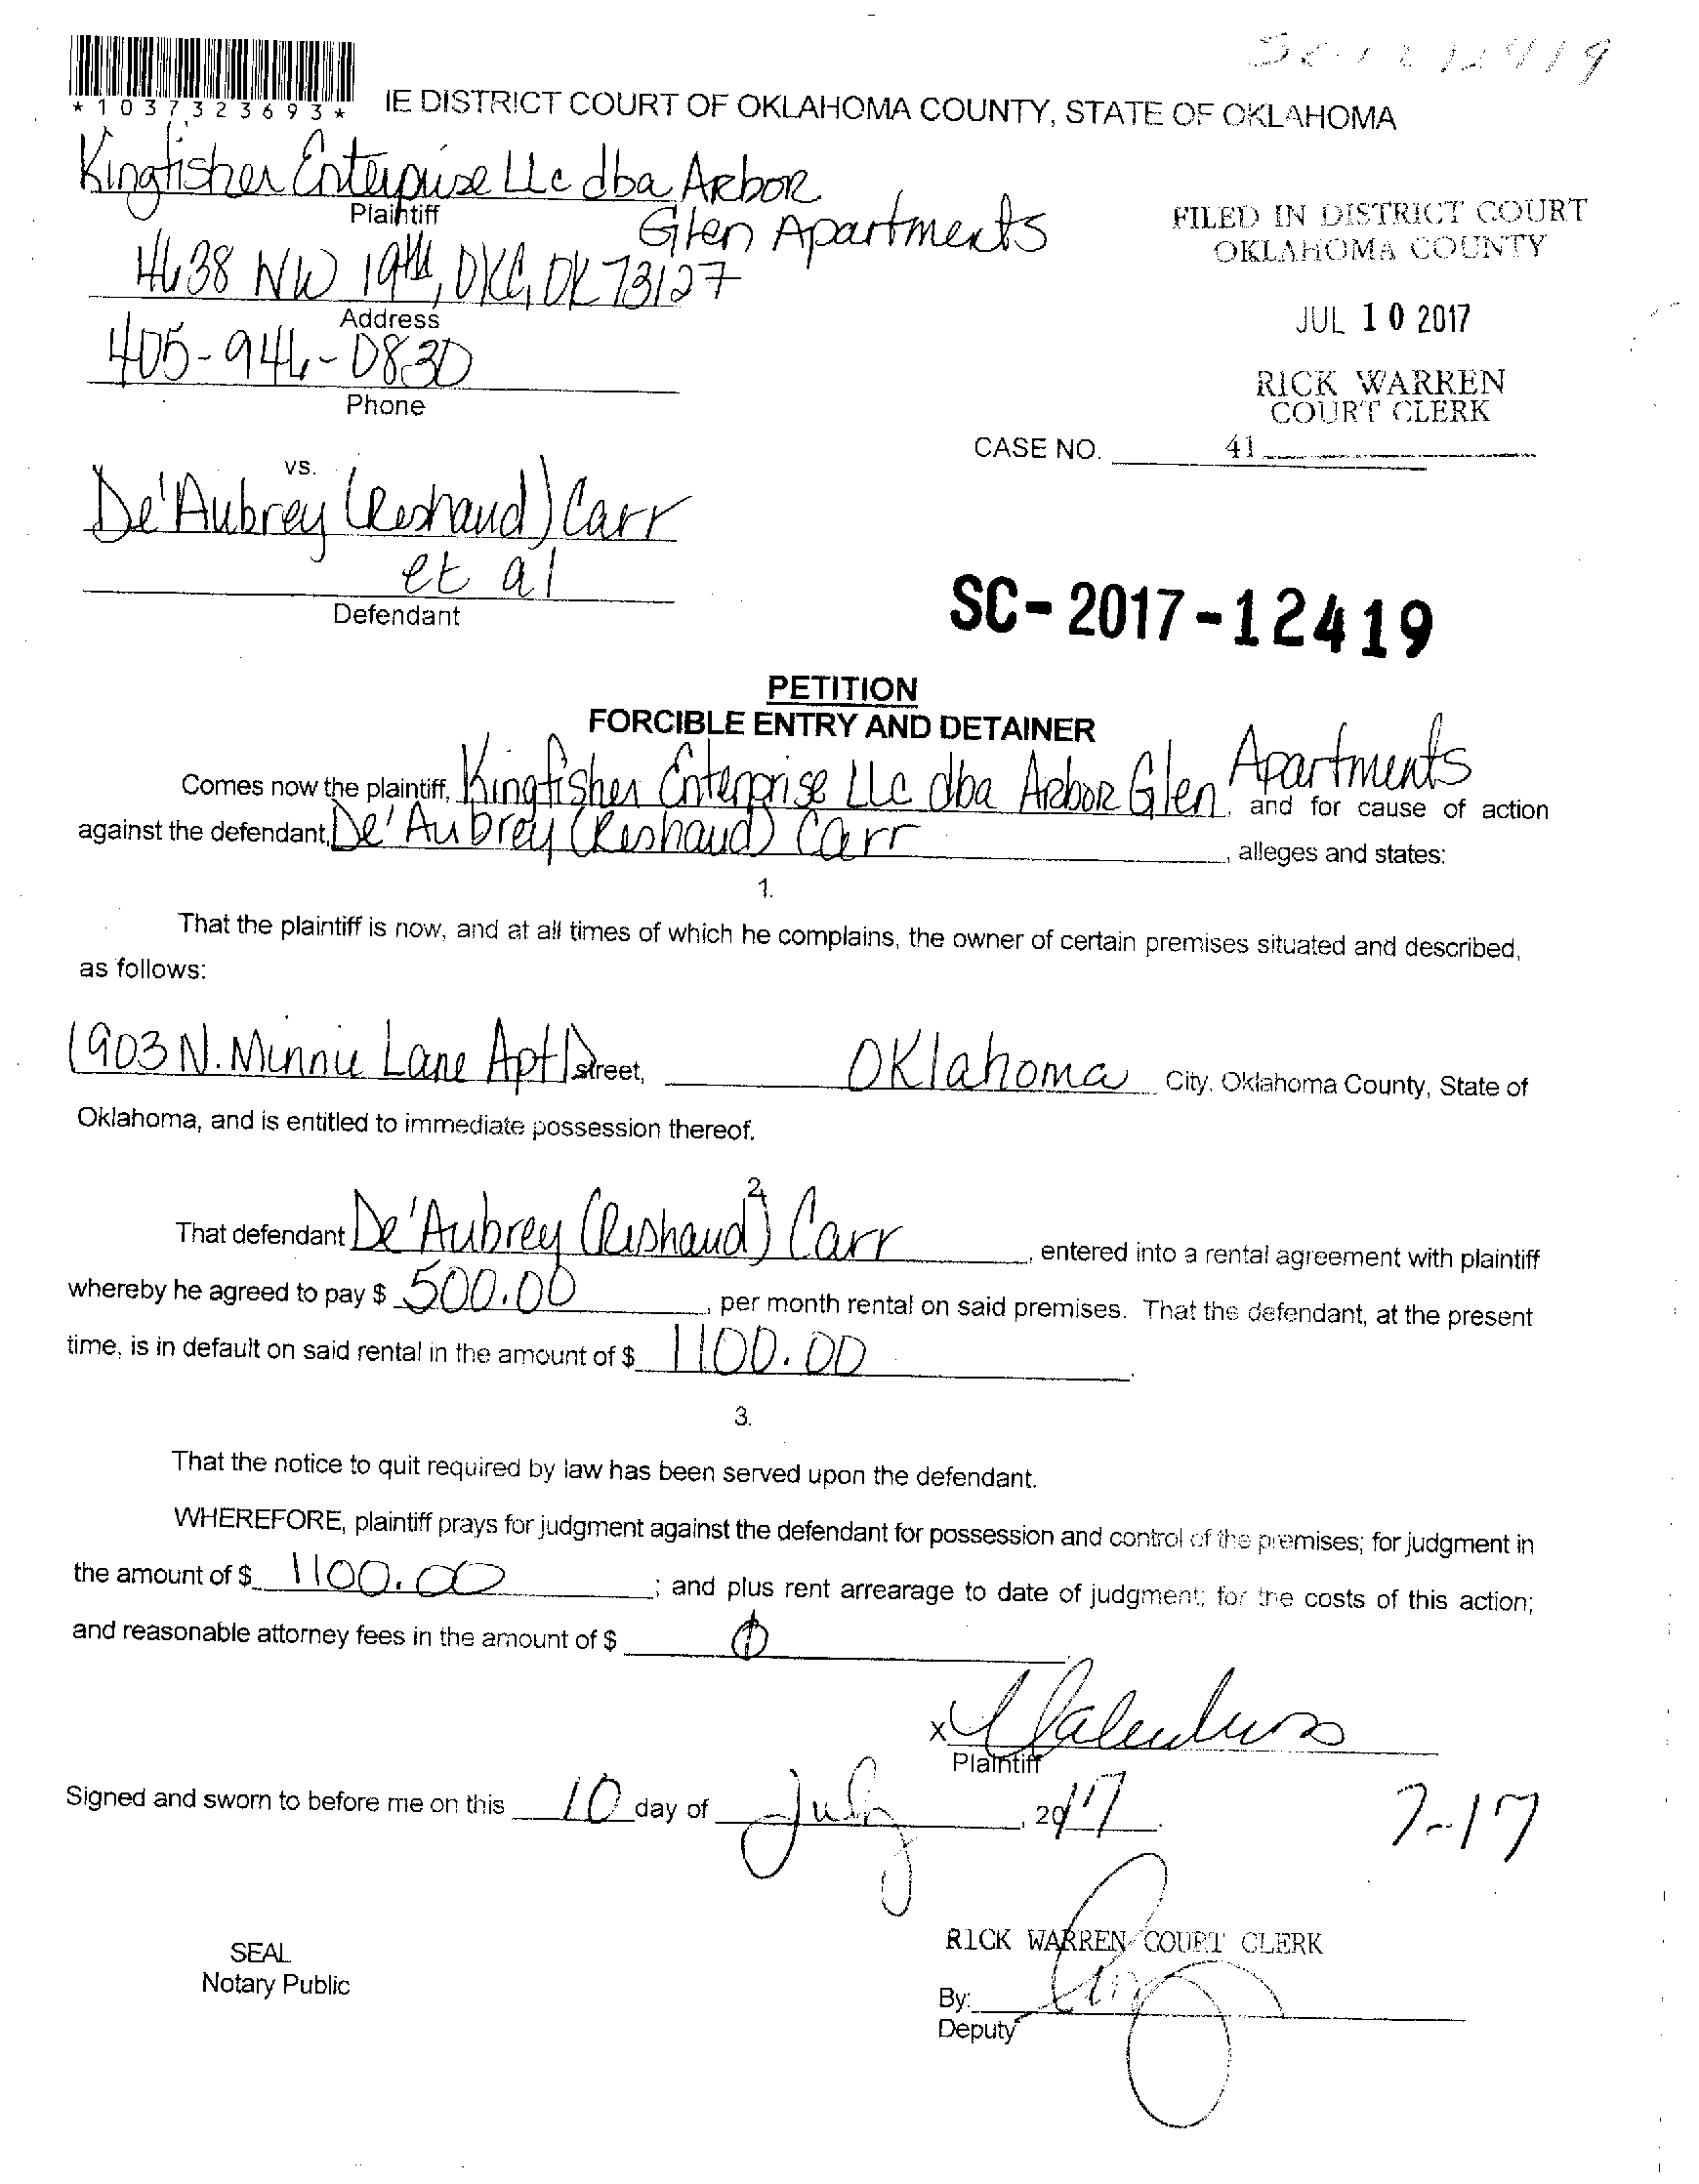 *1037323693*
IE DISTRICT COURT OF OKLAHOMA COUNTY, STATE OF OKLAHOMA
Kingfisher Enterprise LLc dba Arbor
Plaintiff
Glen Apartments
FILED IN DISTRICT COURT
OKLAHOMA COUNTY
4638 NW 19th, OKC, OK 73127
Address
JUL 10 2017
405-946-0830
Phone
RICK WARREN
COURT CLERK
CASE NO.
41
vs.
De'Aubrey (Reshaud) Carr
et al
Defendant
SC-2017-12419
PETITION
FORCIBLE ENTRY AND DETAINER
Comes now the plaintiff, Kingfisher Enterprise LLc dba Arbor Glen Apartments, and for cause of action
against the defendant, De'Aubrey (Reshaud) Carr, alleges and states:
1.
That the plaintiff is now, and at all times of which he complains, the owner of certain premises situated and described,
as follows:
1903 N. Minnie Lane Apt Street, Oklahoma City, Oklahoma County, State of
Oklahoma, and is entitled to immediate possession thereof.
2.
That defendant De'Aubrey (Reshaud) Carr, entered into a rental agreement with plaintiff
whereby he agreed to pay $ 500.00, per month rental on said premises. That the defendant, at the present
time, is in default on said rental in the amount of $ 1100.00.
3.
That the notice to quit required by law has been served upon the defendant.
WHEREFORE, plaintiff prays for judgment against the defendant for possession and control of the premises; for judgment in
the amount of $ 1100.00; and plus rent arrearage to date of judgment; for the costs of this action;
and reasonable attorney fees in the amount of $
x
Plaintiff
Signed and sworn to before me on this 10 day of July, 2017
7-17
RICK WARREN COURT CLERK
SEAL
Notary Public
By:
Deputy